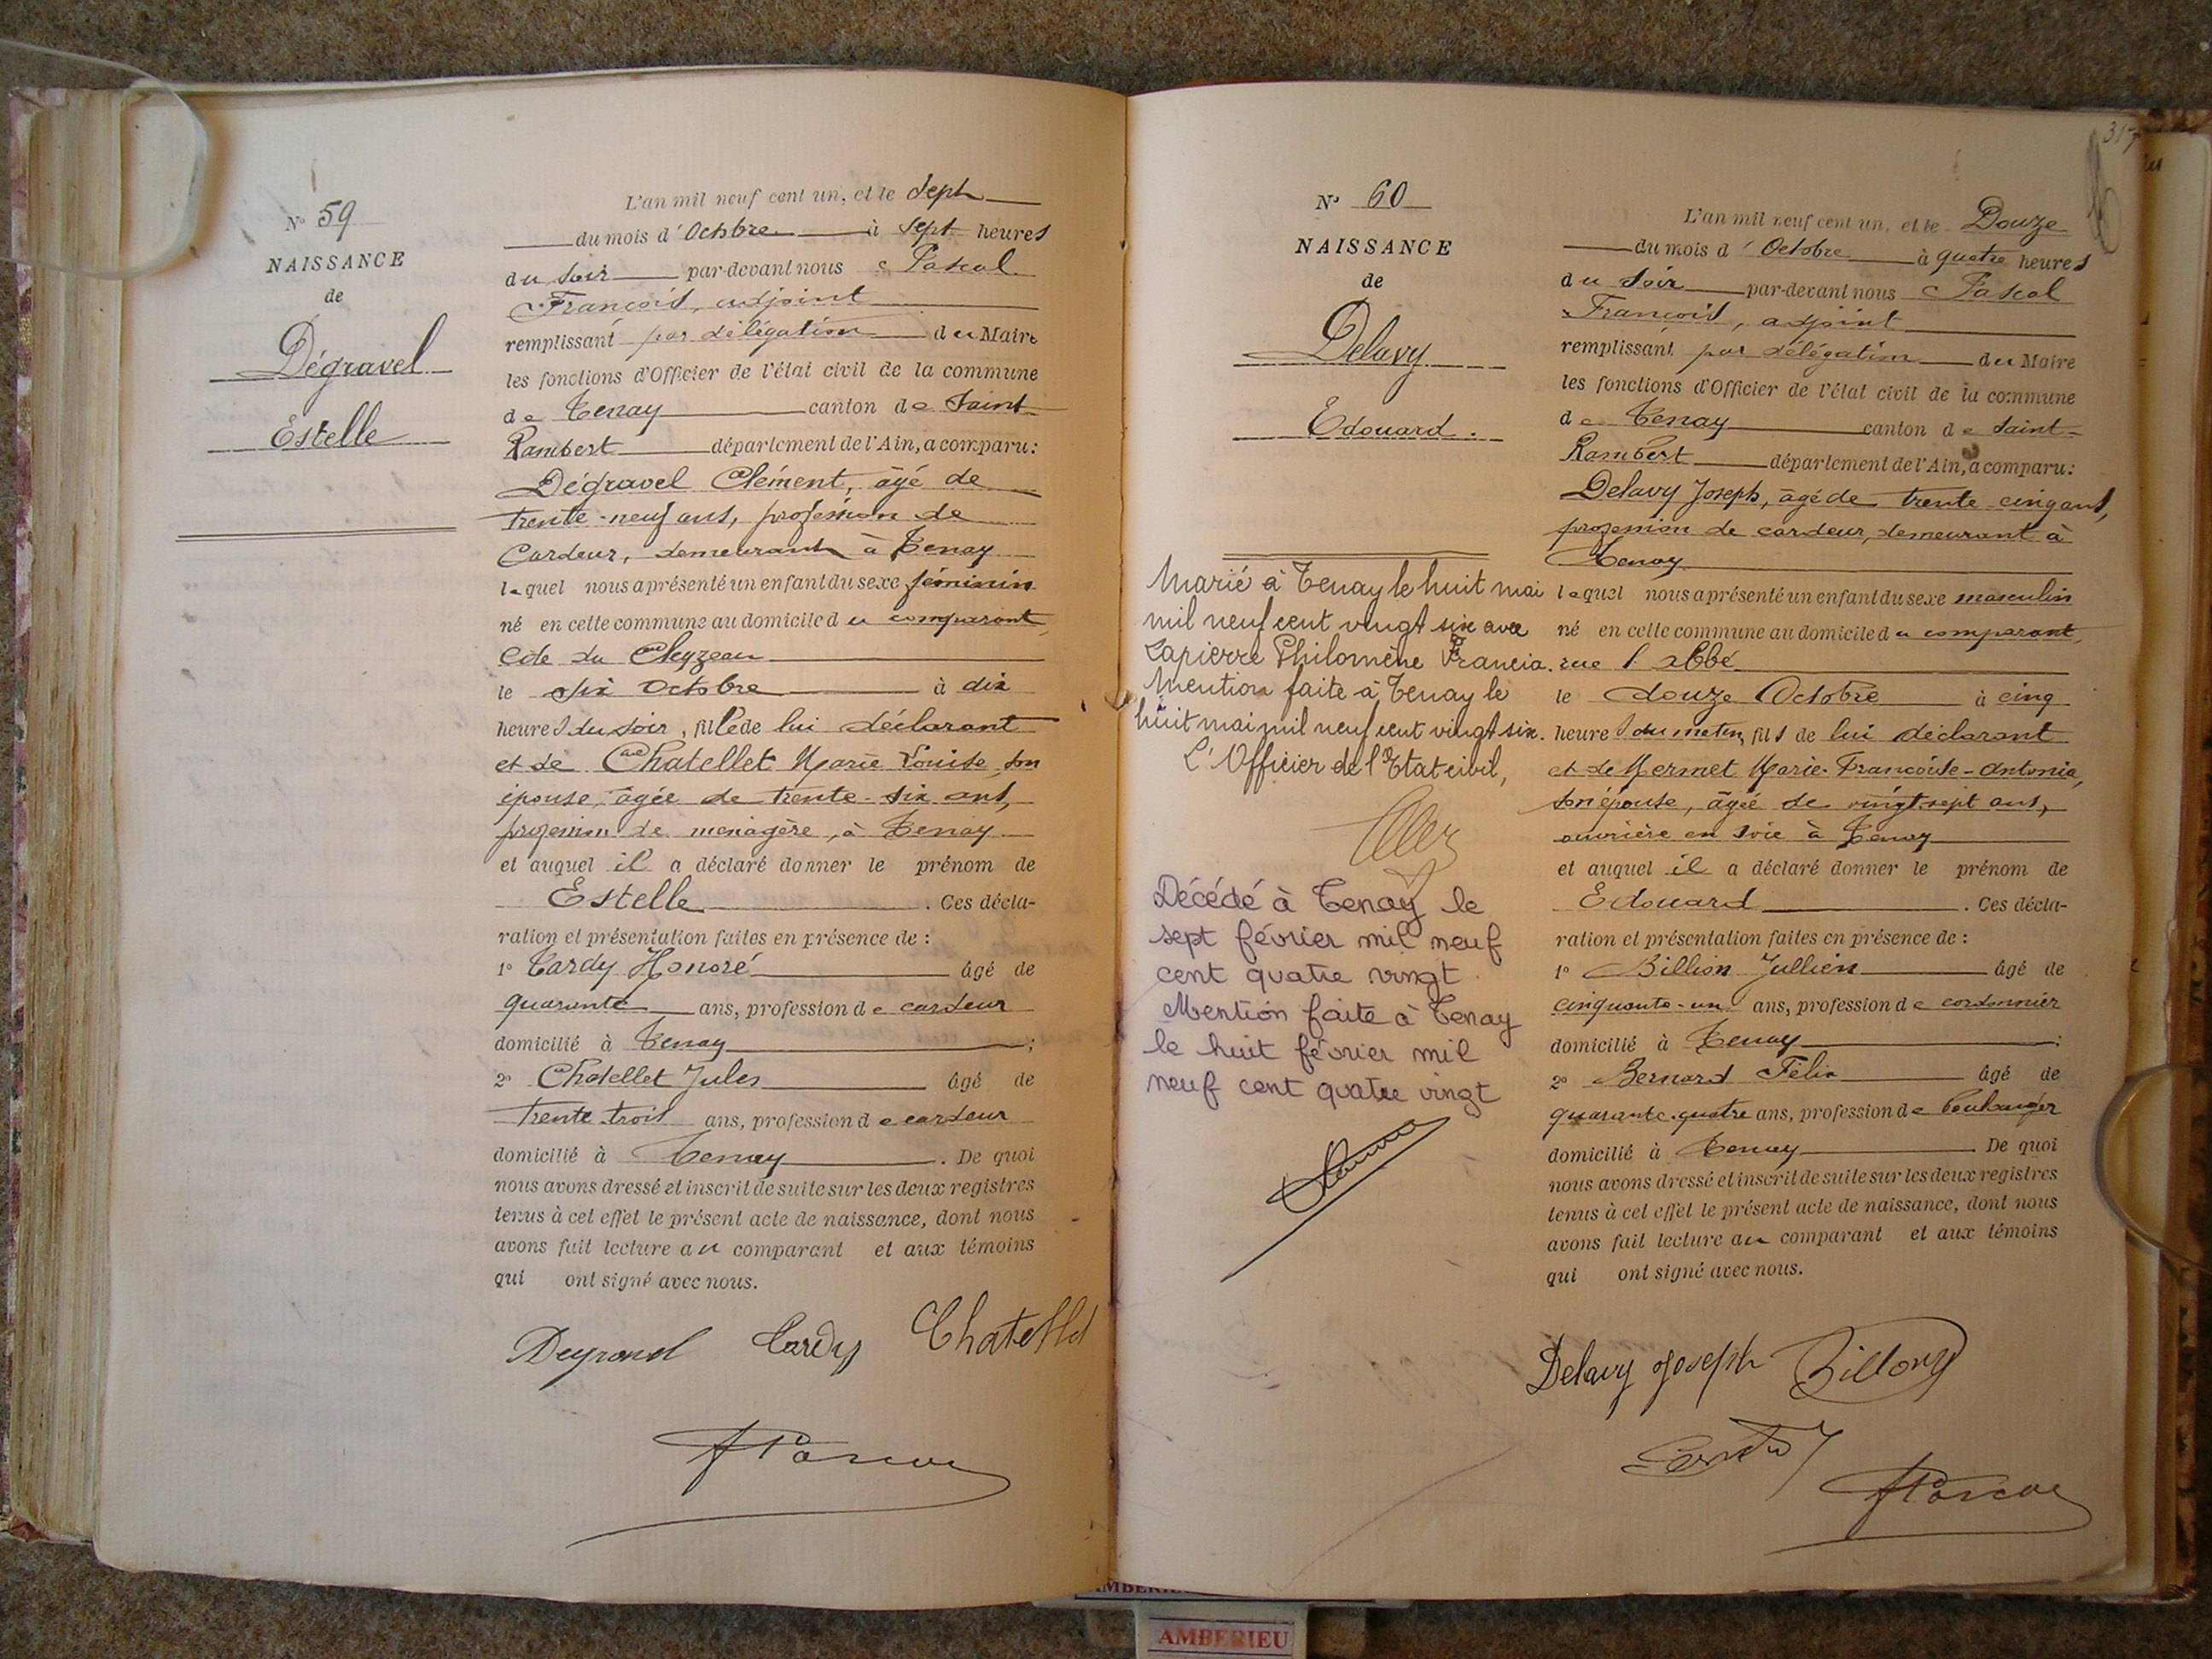 N° 59
NAISSANCE
de
Dégravel
Estelle
L'an mil neuf cent un, et le Sept
du mois d'Octobre à sept heures
du soir par-devant nous Pascal
François, adjoint
remplissant par délégation du Maire
les fonctions d'Officier de l'état civil de la commune
de Tenay canton de Saint-
Rambert département de l'Ain, a comparu:
Dégravel Clément, âgé de
trente-neuf ans, profession de
Cardeur, demeurant à Tenay
lequel nous a présenté un enfant du sexe féminin
né en cette commune au domicile du comparant,
Cité du Cleyzeau
le six Octobre à dix
heures du soir, fille de lui déclarant
et de Chatellet Marie Louise, son
épouse, âgée de trente-six ans,
profession de ménagère, à Tenay
et auquel il a déclaré donner le prénom de
Estelle. Ces décla-
ration et présentation faites en présence de :
1° Tardy Honoré âgé de
quarante ans, profession de cardeur
domicilié à Tenay ;
2° Chatellet Jules âgé de
trente-trois ans, profession de cardeur
domicilié à Tenay. De quoi
nous avons dressé et inscrit de suite sur les deux registres
tenus à cet effet le présent acte de naissance, dont nous
avons fait lecture au comparant et aux témoins
qui ont signé avec nous.
Tardy Chatellet
317
N° 60
NAISSANCE
de
Delavy
Edouard.
Marié à Tenay le huit mai
mil neuf cent vingt six avec
Lapierre Philomène Francia.
Mention faite à Tenay le
huit mai mil neuf cent vingt six.
L'Officier de l'Etat civil,
Décédé à Tenay le
sept février mil neuf
cent quatre vingt
Mention faite à Tenay
le huit février mil
neuf cent quatre vingt
L'an mil neuf cent un, et le Douze
du mois d'Octobre à quatre heures
du soir par-devant nous Pascal
François, adjoint
remplissant par délégation du Maire
les fonctions d'Officier de l'état civil de la commune
de Tenay canton de Saint-
Rambert département de l'Ain, a comparu:
Delavy Joseph, âgé de trente cinq ans,
profession de cardeur, demeurant à
Tenay
lequel nous a présenté un enfant du sexe masculin
né en cette commune au domicile du comparant,
rue l'abbé
le douze Octobre à cinq
heures du matin, fils de lui déclarant
et de Mermet Marie-Françoise-Antonia,
son épouse, âgée de vingt-sept ans,
ouvrière en soie à Tenay
et auquel il a déclaré donner le prénom de
Edouard. Ces décla-
ration et présentation faites en présence de :
1° Billion Jullien âgé de
cinquante-un ans, profession de cordonnier
domicilié à Tenay ;
2° Bernard Félix âgé de
quarante-quatre ans, profession de boulanger
domicilié à Tenay De quoi
nous avons dressé et inscrit de suite sur les deux registres
tenus à cet effet le présent acte de naissance, dont nous
avons fait lecture au comparant et aux témoins
qui ont signé avec nous.
Delavy Joseph
AMBERIEU